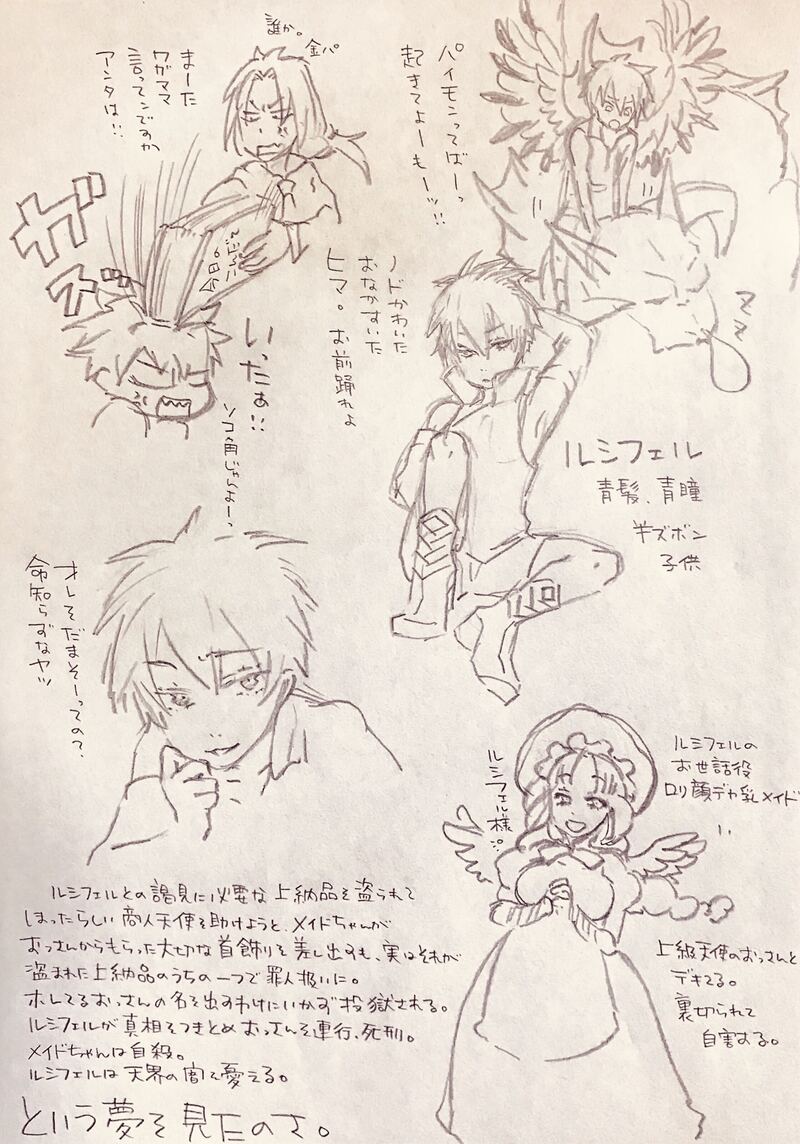 誰か。
金パ
まーた
ワガママ
言ってンですか
アンタは!!
ガッ
パイモンってばーっ
起きてよーもーッ!!
ZZ
ノドかわいた
おなかすいた
ヒマ。お前踊れよ
いったぁ!!
ソコ角じゃんよーっ
ルシフェル
青髪、青瞳
半ズボン
子供
オレをだまそーっての?
命知らずなヤツ
ルシフェルの
お世話役
ロリ顔デカ乳メイド
ルシフェル様
上級天使のおっさんと
デキてる。
裏切られて
自害する。
ルシフェルとの謁見に必要な上納品を盗られて
しまったらしい商人天使を助けようと、メイドちゃんが
おっさんからもらった大切な首飾りを差し出すも、実はそれが
盗まれた上納品のうちの一つで罪人扱いに。
ホレてるおっさんの名を出すわけにいかず投獄される。
ルシフェルが真相をつきとめおっさんを連行、死刑。
メイドちゃんは自殺。
ルシフェルは天界の闇を憂える。
という夢を見たのさ。